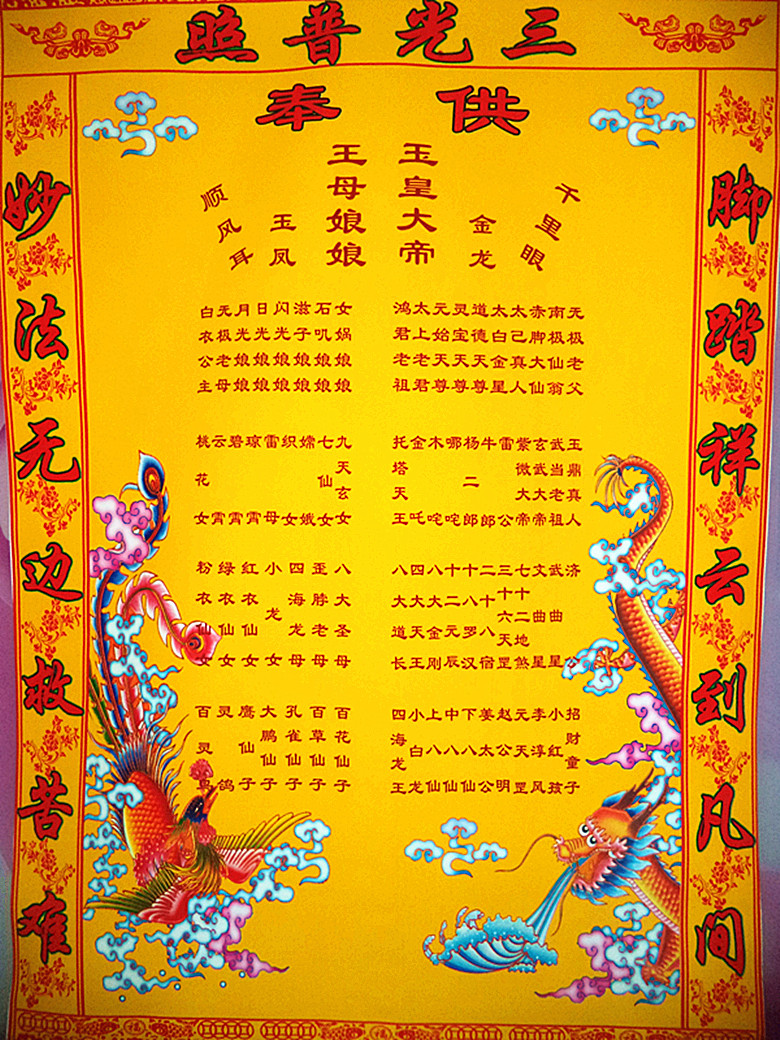 三光普照
供奉
脚踏祥云到凡间
妙法无边救苦难
玉皇大帝
王母娘娘
金龙
玉凤
千里眼
顺风耳
无极老父
南极仙翁
赤脚大仙
太己真人
太白金星
道德天尊
灵宝天尊
元始天尊
太上老君
鸿君老祖
女娲娘娘
石叽娘娘
滋子娘娘
闪光娘娘
日光娘娘
月光娘娘
无极老母
白衣公主
玉鼎真人
武当老祖
玄武大帝
紫微大帝
雷公
牛郎
杨二郎
哪咤
木咤
金吒
托塔天王
九天玄女
七仙女
嫦娥
织女
雷母
琼霄
碧霄
云霄
桃花女
济公
武曲星
文曲星
七十二地煞
三十六天罡
二十八宿
十八罗汉
十二元辰
八大金刚
四大天王
八大道长
八大圣母
歪脖老母
四海龙母
小龙女
红衣仙女
绿衣仙女
粉衣仙女
招财童子
小红孩
李淳风
元天罡
赵公明
姜太公
下八仙
中八仙
上八仙
小白龙
四海龙王
百花仙子
百草仙子
孔雀仙子
大鹏仙子
鹰仙子
灵鸽
百灵鸟